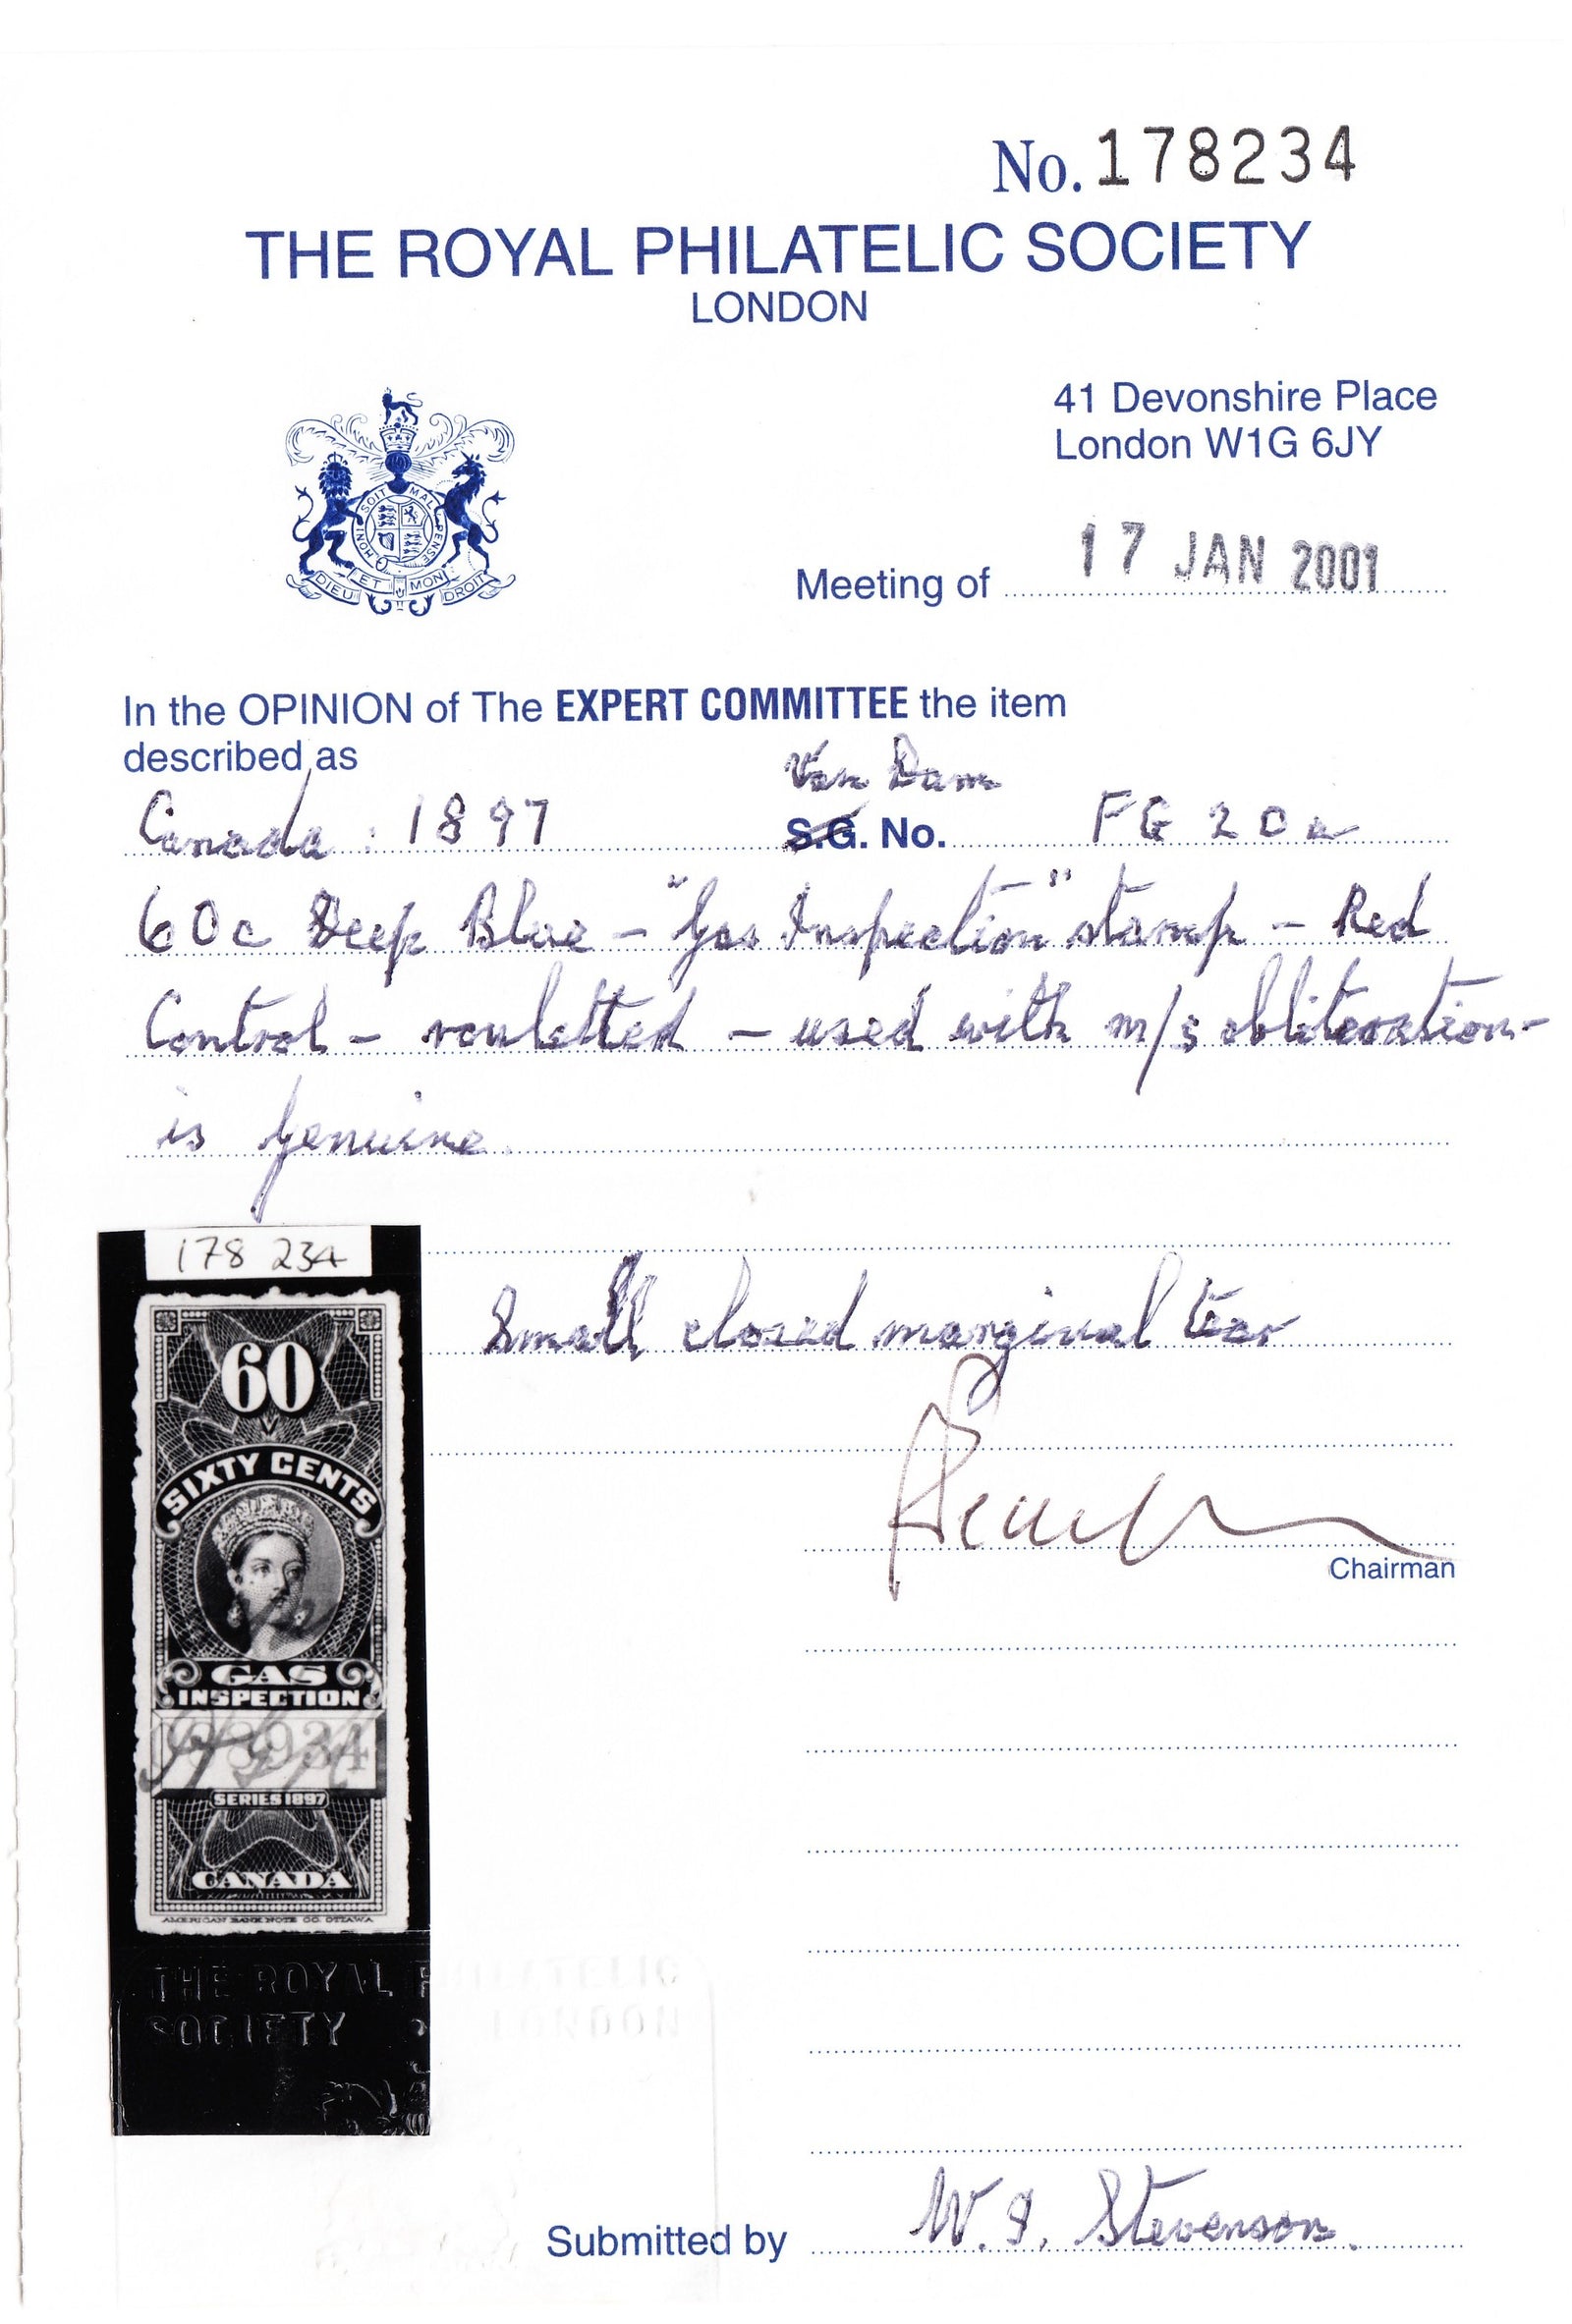 No. 178234
THE ROYAL PHILATELIC SOCIETY
LONDON
41 Devonshire Place
London W1G 6JY
SOIT MAL PENSE HONI
DIEU ET MON DROIT
Meeting of 17 JAN 2001
In the OPINION of The EXPERT COMMITTEE the item
described as
Van Dam
Canada : 1897 S.G. No. FG 20a
60c Deep Blue - "Gas Inspection" stamp - Red
Control - rouletted - used with m/s obliteration -
is genuine.
178 234
Small closed marginal tear
60
SIXTY CENTS
Chairman
GAS
INSPECTION
SERIES 1897
CANADA
AMERICAN BANK NOTE CO. OTTAWA
THE ROYAL PHILATELIC
SOCIETY LONDON
Submitted by W. J. Stevenson.